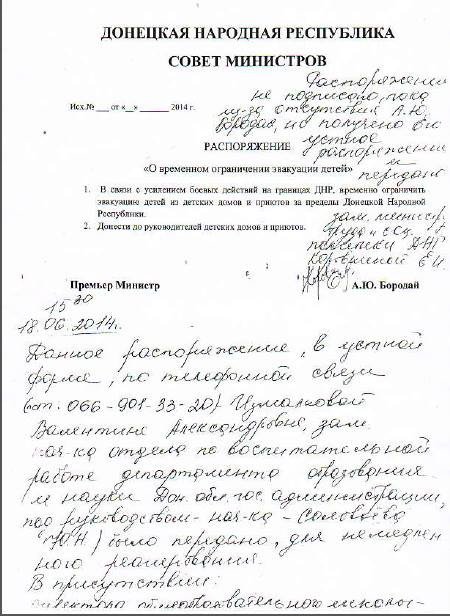 ДОНЕЦКАЯ НАРОДНАЯ РЕСПУБЛИКА
СОВЕТ МИНИСТРОВ
Распоряжение
не подписано, пока
из-за отсутствия А.Ю.
Бородая, но получено его
устное
распоряжение
и
передано
Исх.№ ___ от «__» ______ 2014 г.
РАСПОРЯЖЕНИЕ
«О временном ограничении эвакуации детей»
1. В связи с усилением боевых действий на границах ДНР, временно ограничить
эвакуацию детей из детских домов и приютов за пределы Донецкой Народной
Республики.
2. Донести до руководителей детских домов и приютов.
зам. министр.
труда и соц.
политики ДНР
Е.И.
Премьер Министр
А.Ю. Бородай
15 30
18.06.2014г.
Данное распоряжение, в устной
форме, по телефонной связи
066-901-33-20) Измалковой
Валентине Александровне, зам.
нач-ка отдела по воспитательной
работе департамента образования
и науки Дон. обл. гос. администрации,
под руководством нач-ка - Соловьёва
Ю.Н.) было передано, для немедлен
ного реагирования.
В присутствии:
директора